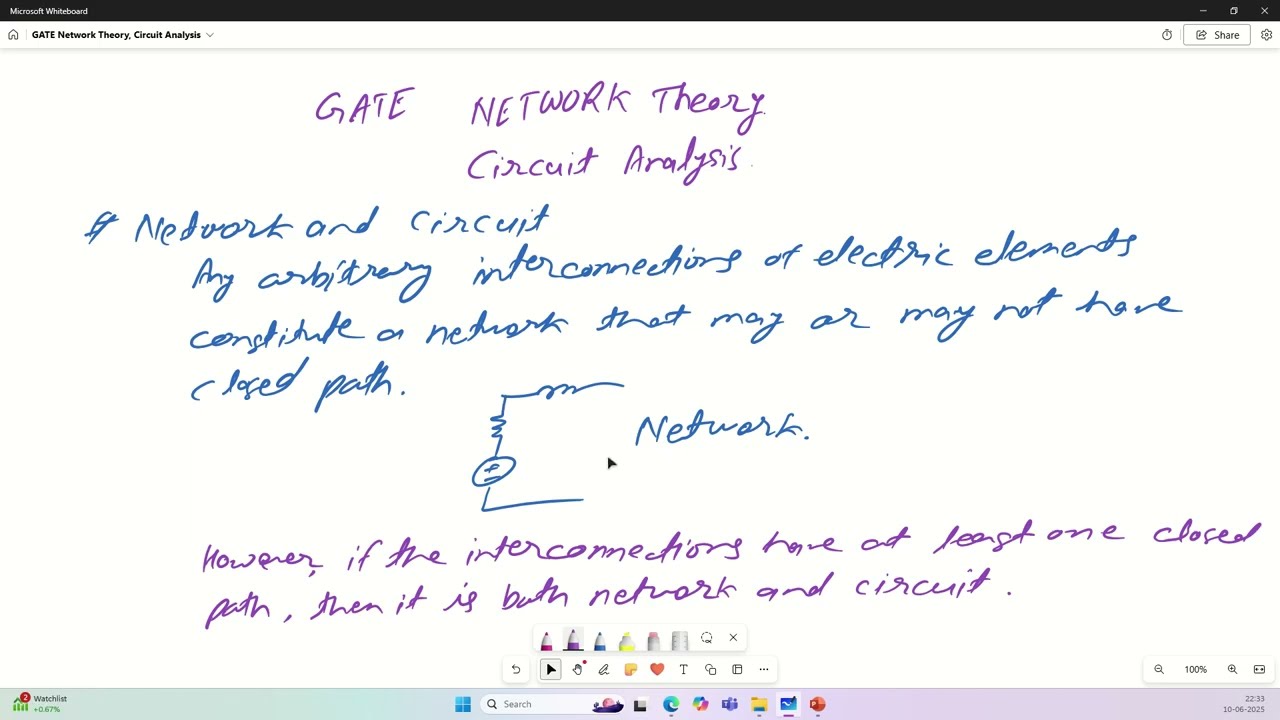 Microsoft Whiteboard
GATE Network Theory, Circuit Analysis
Share
GATE NETWORK Theory
Circuit Analysis
# Network and Circuit
Any arbitrary interconnections of electric elements
constitute a network that may or may not have
closed path.
Network.
However, if the interconnections have at least one closed
path, then it is both network and circuit.
100%
2
Watchlist
+0.67%
Search
22:33
10-06-2025